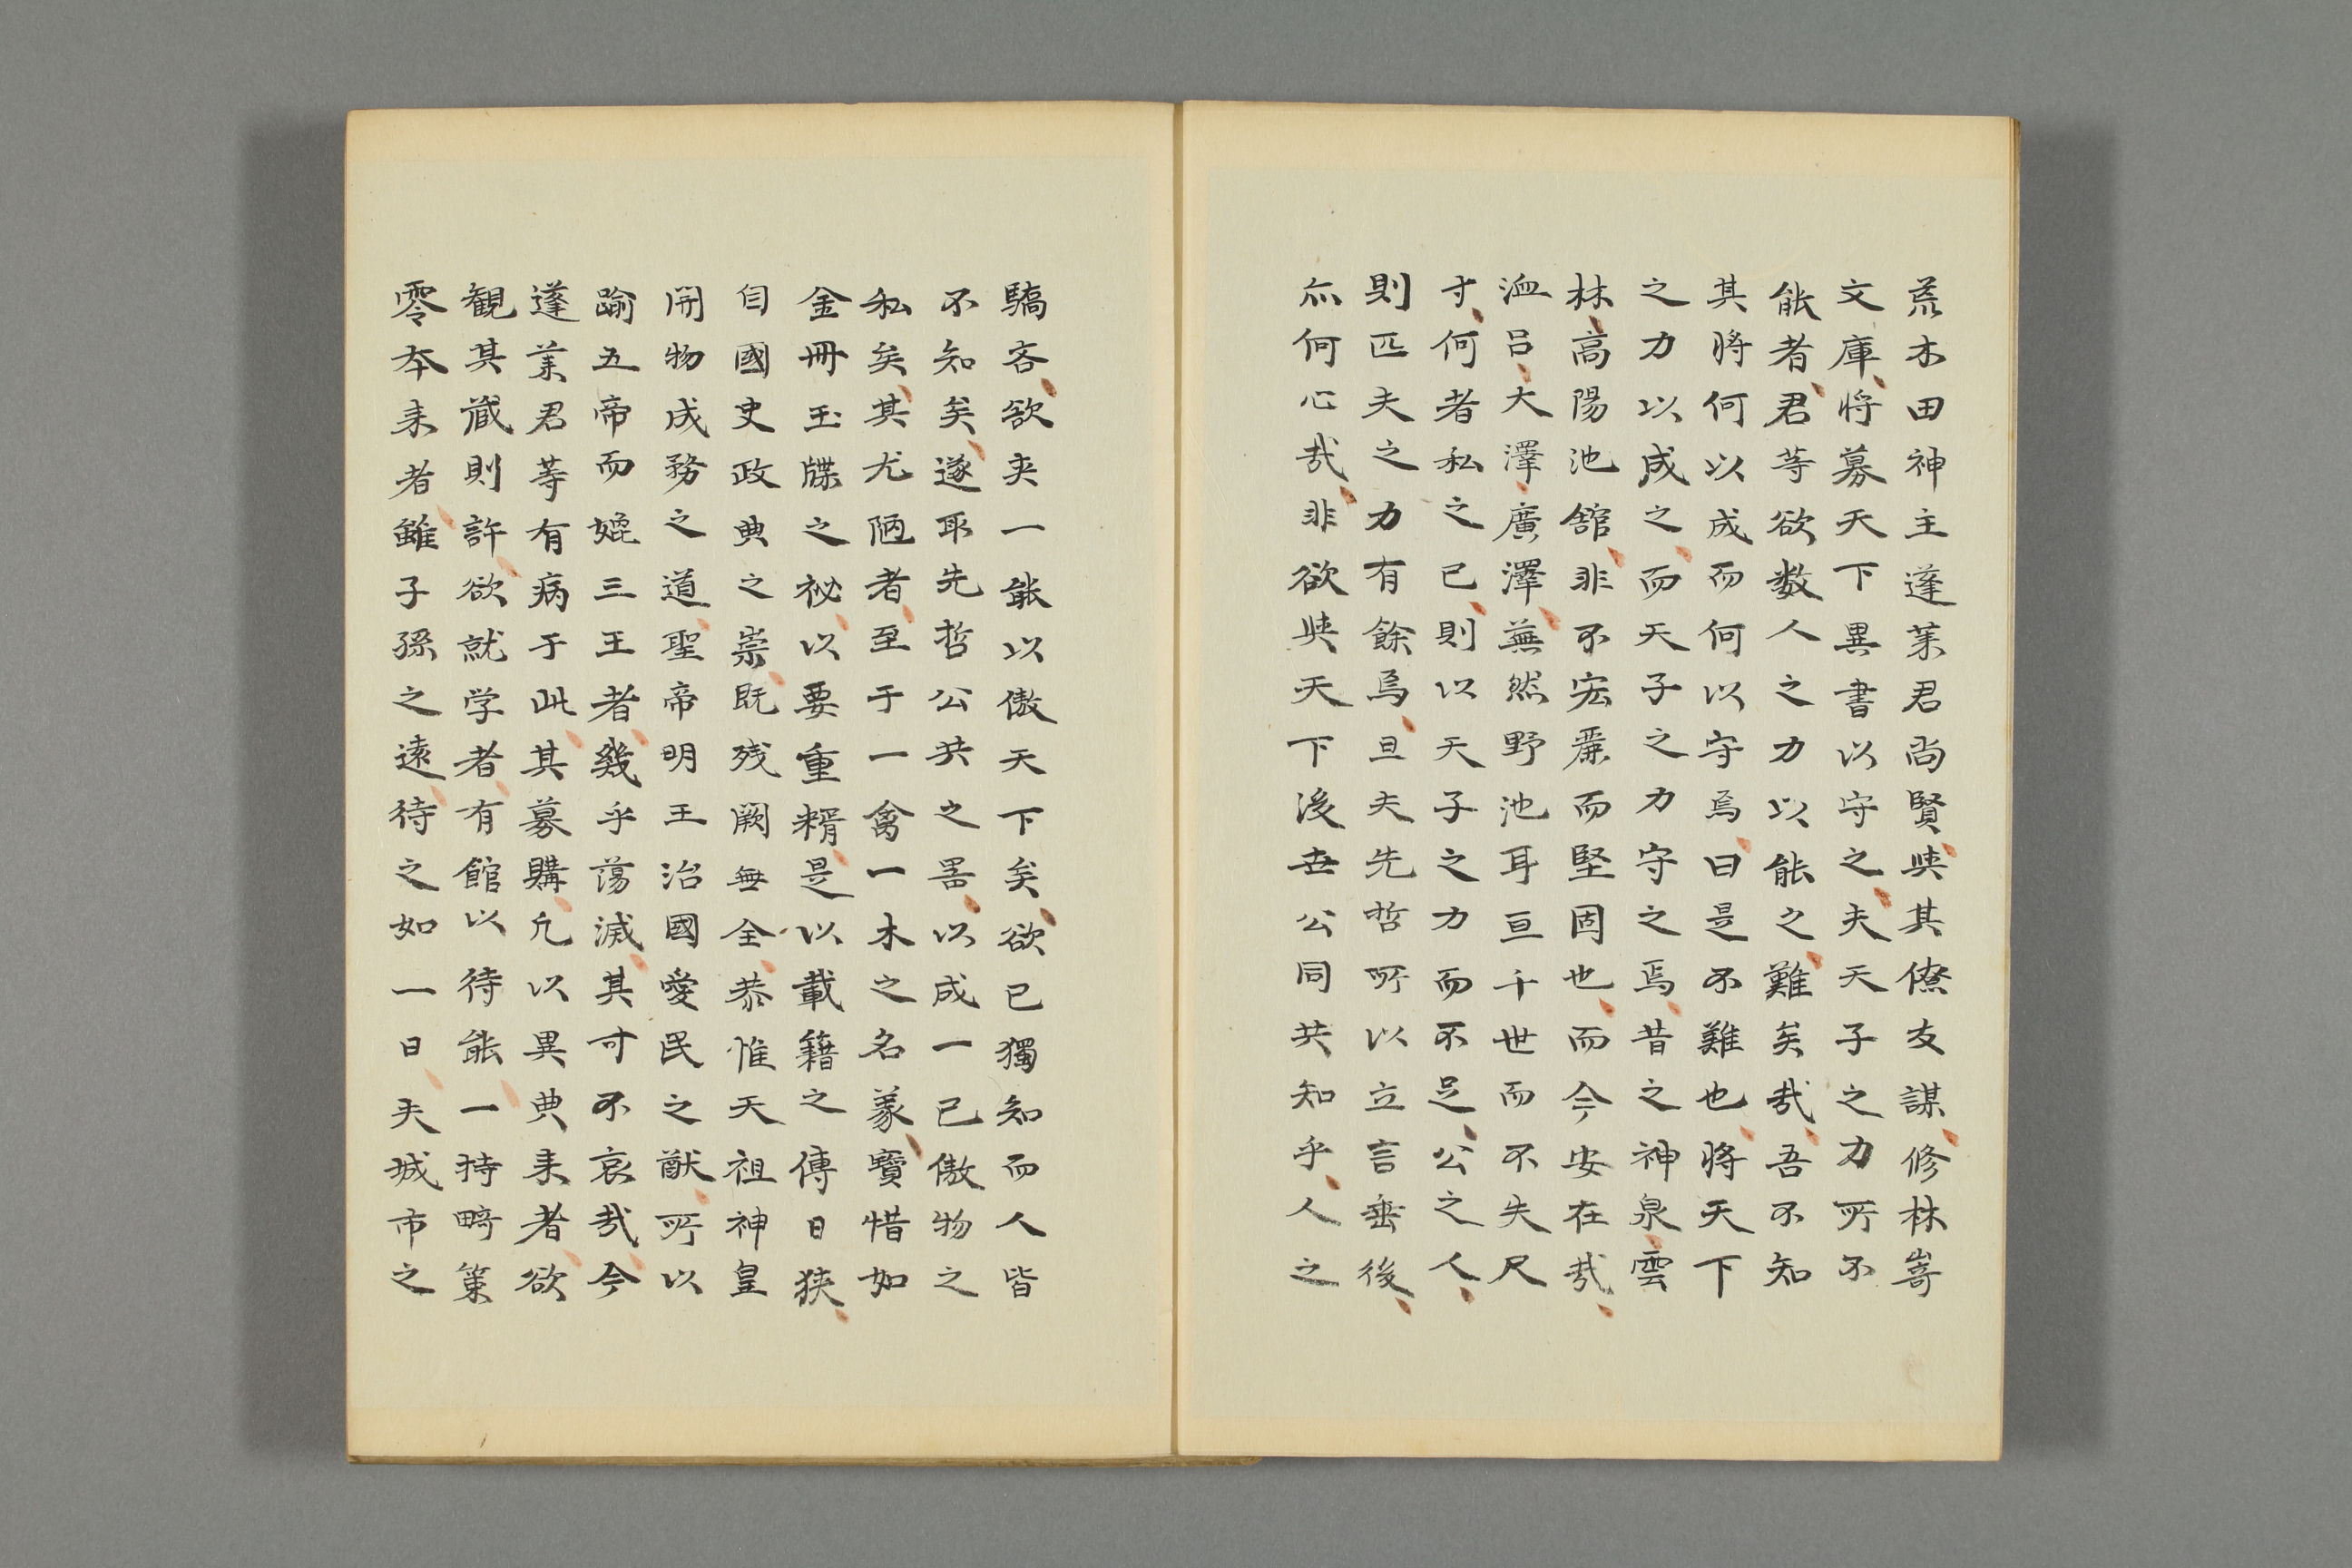 荒木田神主蓬莱君尚賢與其僚友謀修林嵜
文庫将募天下異書以守之夫天子之力所不
能者君等欲数人之力以能之難矣哉吾不知
其将何以成而何以守焉曰是不難也将天下
之力以成之而天子之力守之焉昔之神泉雲
林高陽池舘非不宏麗而堅固也而今安在哉
洫呂大澤廣澤蕪然野池耳亘千世而不失尺
寸何者私之已則以天子之力而不足公之人
則匹夫之力有餘焉且夫先哲所以立言垂後
亦何心哉非欲與天下後世公同共知乎人之
驕吝欲夾一能以傲天下矣欲已獨知而人皆
不知矣遂取先哲公共之噐以成一己傲物之
私矣其尤陋者至于一禽一木之名義寶惜如
金冊玉牒之祕以要重糈是以載籍之傳日狭
自國史政典之崇既残闕無全恭惟天祖神皇
開物成務之道聖帝明王治國愛民之猷所以
踰五帝而媲三王者幾乎蕩滅其可不哀哉今
蓬莱君等有病于此其募購凡以異典来者欲
観其蔵則許欲就学者有館以待能一持畸策
零本来者雖子孫之遠待之如一日夫城市之